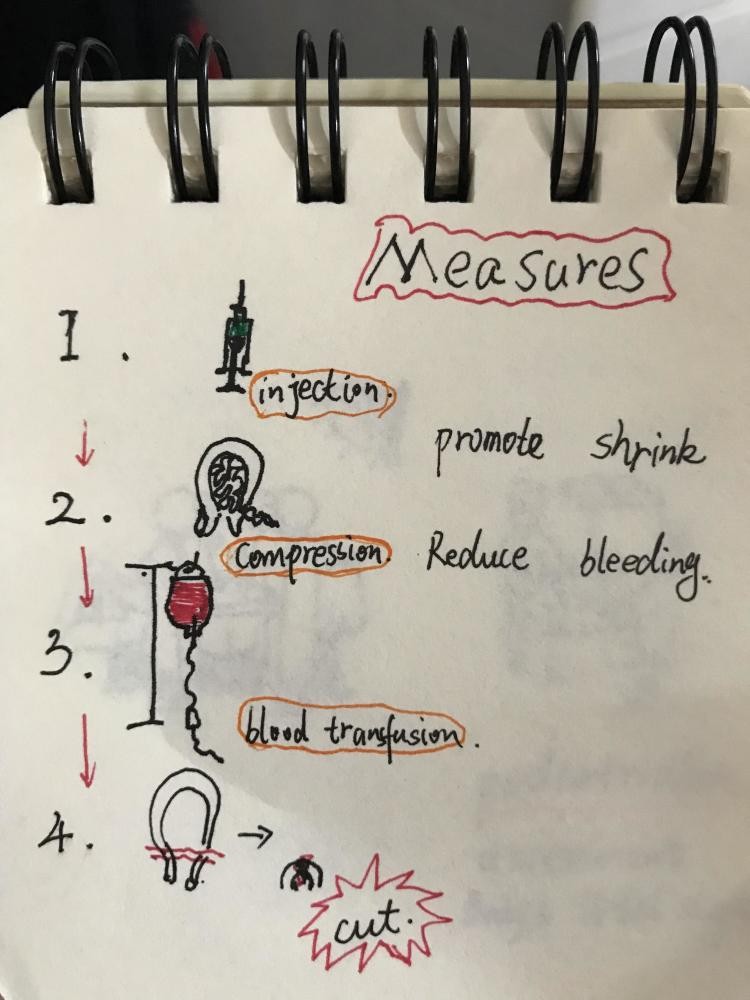 Measures
1.
injection.
promote shrink
2.
Compression. Reduce bleeding..
3.
blood transfusion.
4.
cut.